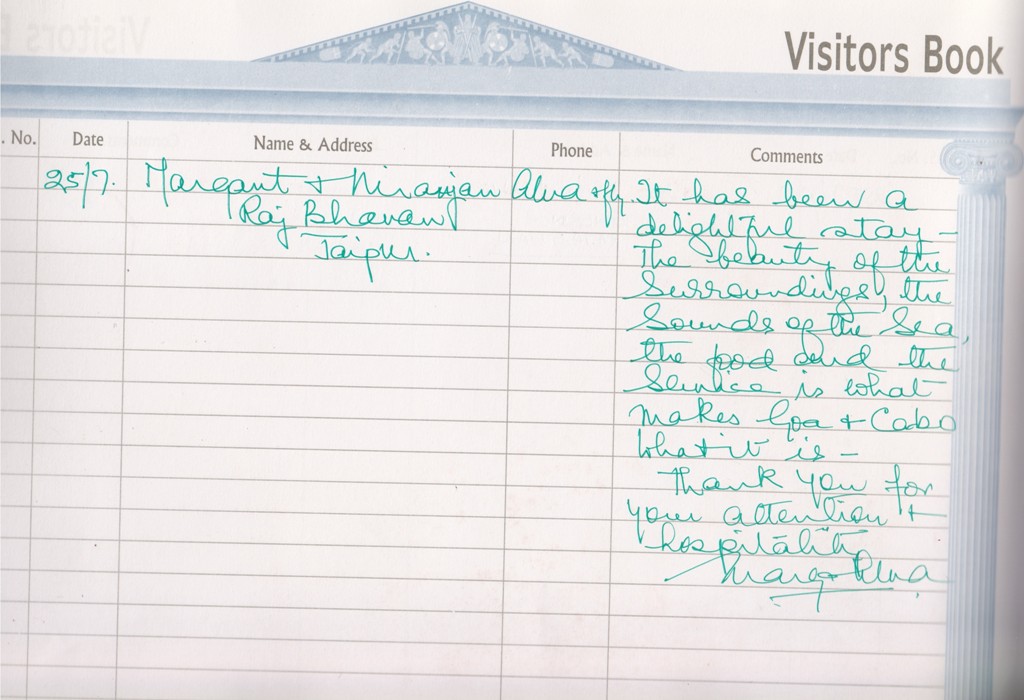 Visitors Book
. No.
Date
Name & Address
Phone
Comments
25/7.
Margaret + Niranjan Alva + fly.
Raj Bhavan
Jaipur.
It has been a
delightful stay –
The beauty of the
Surroundings, the
Sounds of the Sea,
the food and the
Service is what
makes Goa + Cabo
what it is –
Thank you for
your attention +
hospitality
Marga Alva